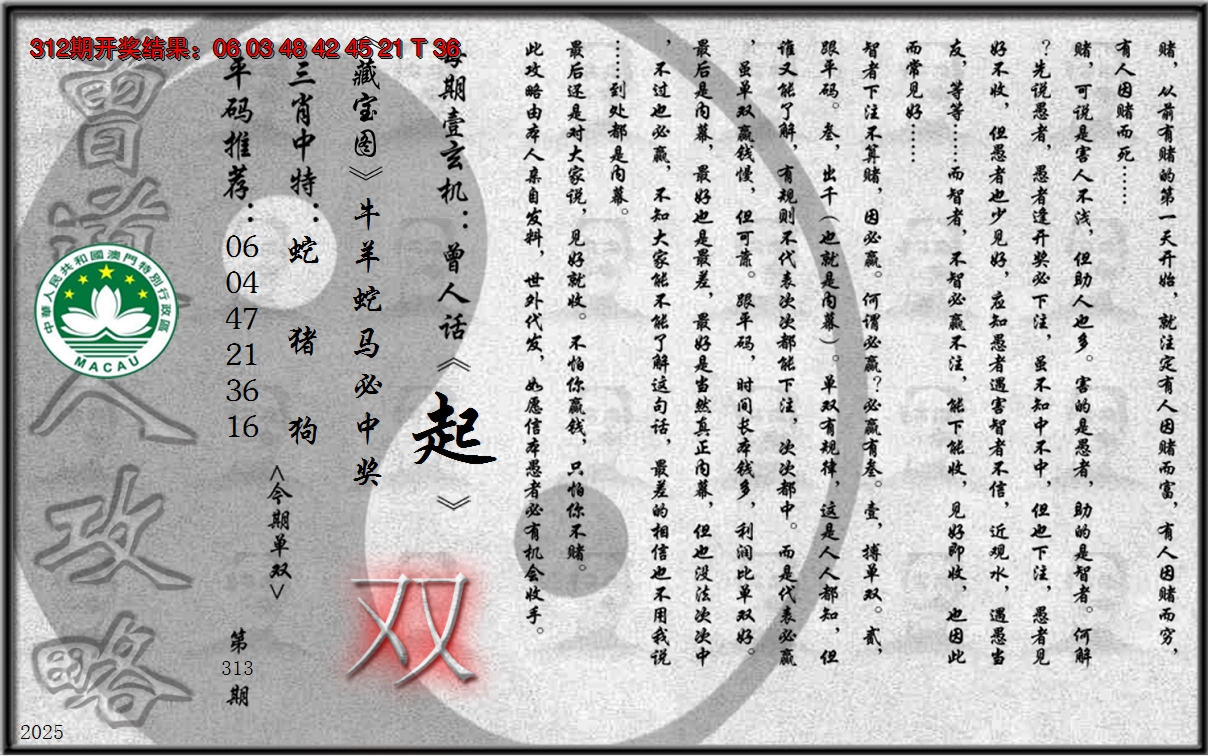 312期开奖结果：06 03 48 42 45 21 T 36
赌，从前有赌的第一天开始，就注定有人因赌而富，有人因赌而穷，
有人因赌而死……
赌，可说是害人不浅，但助人也多。害的是愚者，助的是智者。何解
？先说愚者，愚者逢开奖必下注，虽不知中不中，但也下注，愚者见
好不收，但愚者也少见好，应知愚者遇害智者不信，近观水，遇愚当
友，等等……而智者，不智必赢不注，能下能收，见好即收，也因此
而常见好……
智者下注不算赌，因必赢。何谓必赢？必赢有叁。壹，搏单双。贰，
跟平码。叁，出千（也就是内幕）。单双有规律，这是人人都知，但
谁又能了解，有规则不代表次次都能下注，次次都中。而是代表必赢
，虽单双赢钱慢，但可靠。跟平码，时间长本钱多，利润比单双好。
最后是内幕，最好也是最差，最好是当然真正内幕，但也没法次次中
，不过也必赢，不知大家能不能了解这句话，最差的相信也不用我说
……到处都是内幕。
最后还是对大家说，见好就收。不怕你赢钱，只怕你不赌。
此攻略由本人亲自发料，世外代发，如愿信本愚者必有机会收手。
每期壹玄机：曾人话《起》
《藏宝图》牛羊蛇马必中奖
双
三肖中特：蛇 猪 狗
<今期单双>
平码推荐：06 04 47 21 36 16
第313期
曾道人攻略
中華人民共和國澳門特別行政區
MACAU
2025